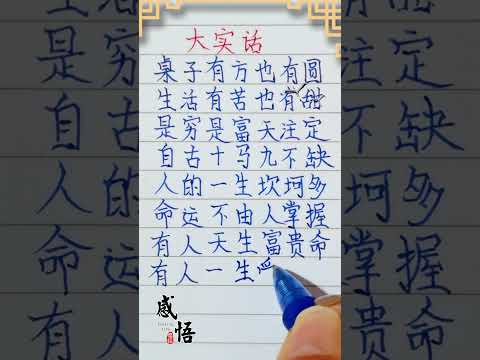 大实话
桌子有方也有圆
生活有苦也有甜
是穷是富天注定
自古十九不缺
人的一生坎坷多
命运不由人掌握
有人天生富贵命
有人一生
感悟